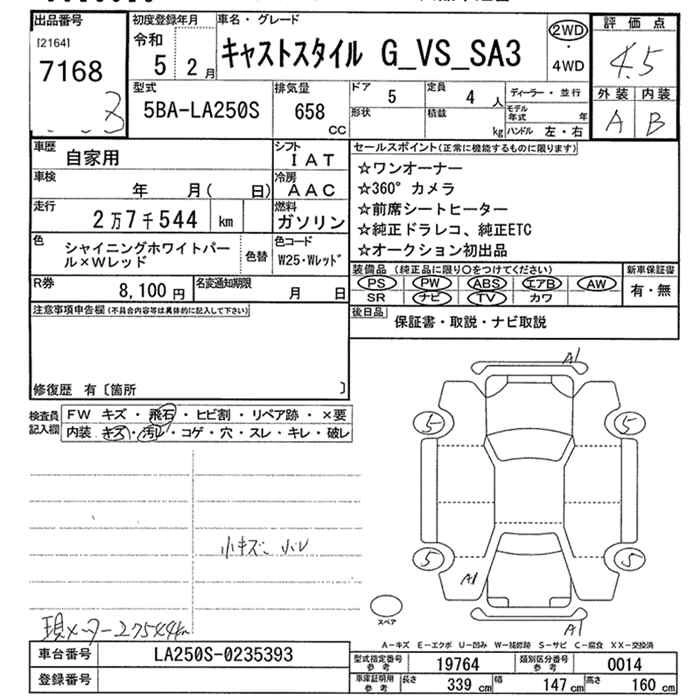 出品番号
[2164]
7168
3
初度登録年月
令和
5 2月
車名・グレード
キャストスタイル G_VS_SA3
2WD
・
4WD
評価点
4.5
外装 内装
A B
型式
5BA-LA250S
排気量
658
CC
ドア
5
定員
4 人
形状
積載
kg
ディーラー・並行
モデル年式 年
ハンドル 左・右
車歴
自家用
シフト
IAT
車検
年 月( 日)
冷房
AAC
走行
2万7千544 km
燃料
ガソリン
色
シャイニングホワイトパール×Wレッド
色替
色コード
W25・Wレッド
R券
8,100円
名変通知期限
月 日
セールスポイント(正常に機能するものに限ります)
☆ワンオーナー
☆360°カメラ
☆前席シートヒーター
☆純正ドラレコ、純正ETC
☆オークション初出品
装備品 (純正品に限り○をつけてください)
PS PW ABS エアB AW
SR ナビ TV カワ
新車保証書
有・無
後日品
保証書・取説・ナビ取説
注意事項申告欄(不具合内容等は具体的に記入して下さい)
修復歴 有〔箇所 〕
検査員記入欄
FW キズ・飛石・ヒビ割・リペア跡・×要
内装 キズ・汚レ・コゲ・穴・スレ・キレ・破レ
小キズ 小ハレ
現メーター27544km
A1
5 5
5 5
A1
A1
スペア
A-キズ E-エクボ U-凹み W-補修跡 S-サビ C-腐食 XX-交換済
車台番号
LA250S-0235393
登録番号
型式指定番号 参考
19764
類別区分番号 参考
0014
車庫証明用 参考
長さ 339 cm
幅 147 cm
高さ 160 cm